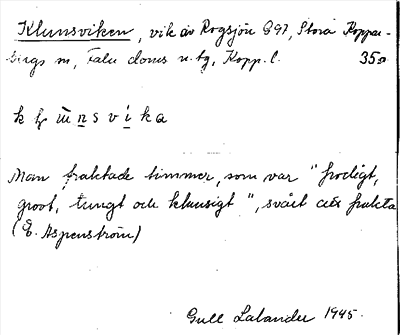 Klunsviken, vik av Rogsjön G 97, Stora Koppar-
bergs sn, Falu doms n. tg, Kopp. l. 350
Man fraktade timmer, som var "frodigt,
grovt, tungt och klunsigt", svårt att frakta
(E. Aspenström)
Gull Lalander 1945.